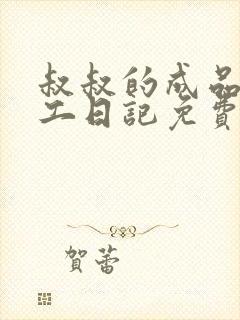 叔叔的成品
工日記免費
賀蕾